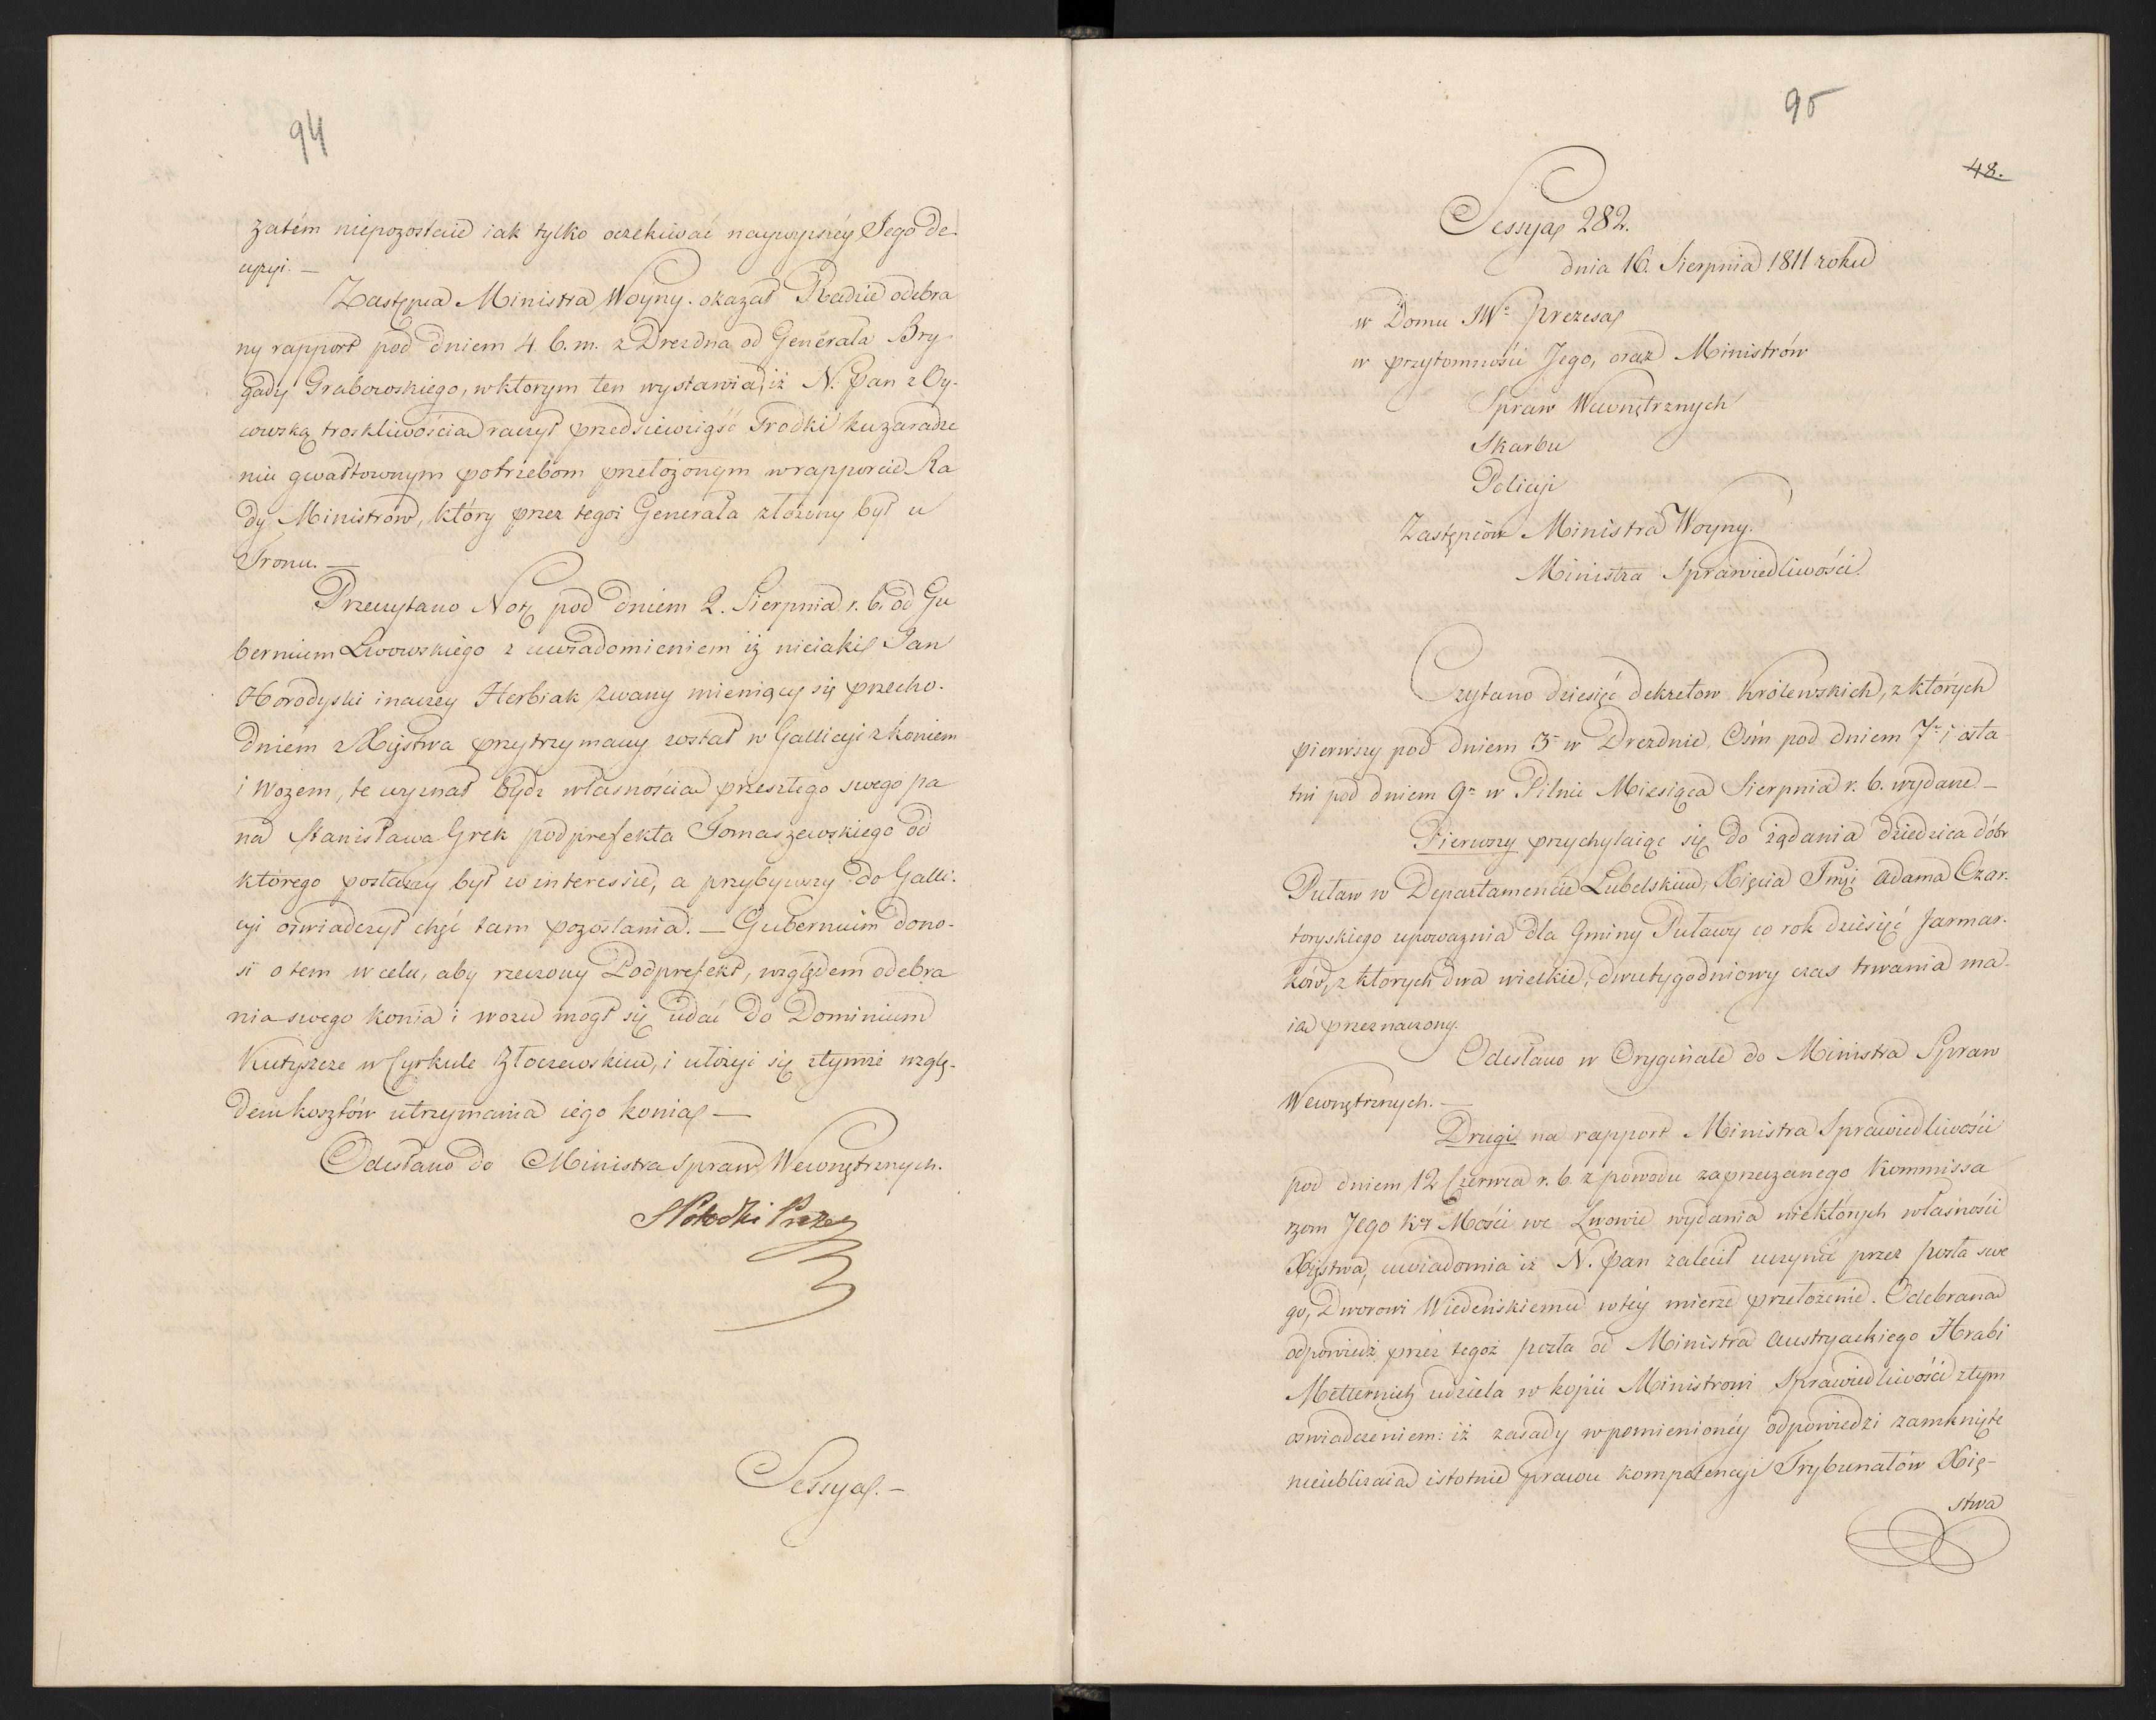 94
zatém niepozostaie iak tylko oczekiwać naywyższéy Jego de-
cyzyi. —
Zastępca Ministra Woyny. okazał Radzie odebra
ny rapport pod dniem 4. b. m. z Drezdna od Generała Bry-
gady Grabowskiego, w ktorym ten wystawia, iż N. Pan z Oy-
cowską troskliwościa raczył przedsiewziąść srodki ku zaradze
niu gwałtownym potrzebom przełożonym w rapporcie Ra
dy Ministrów, który przez tegoż Generała złożony był u
Tronu. —
Przeczytano Notę pod dniem 2. Sierpnia r. b. od Gu
bernium Lwowskiego z uwiadomieniem iż nieiaki Jan
Horodyski inaczey Herbiak zwany mieniący się przecho-
dniem z Xięstwa przytrzymany został w Gallicyi z koniem
i wozem, te wyznał bydz własnościa przeszłego swego pa
na Stanisława Grek podprefekta Tomaszewskiego od
którego posłany był w interessie, a przybywszy do Galli-
cyi oświadczył chęć tam pozostania. — Gubernium dono-
si o tem w celu, aby rzeczony Podprefekt, względem odebra
nia swego konia i wozu mogł się udać do Dominium
Kutyszcze w Cyrkule Złoczewskim, i ułożyć się z tymże wzglę-
dem kosztów utrzymania iego konia —
Odesłano do Ministra Spraw Wewnętrznych.
S Potocki Prezes
Sessya. —
95
48.
Sessya 282.
dnia 16. Sierpnia 1811 roku
w Domu JWo Prezesa
w przytomności Jego, oraz Ministrów
Spraw Wewnętrznych
Skarbu
Policyi
Zastępców Ministra Woyny.
Ministra Sprawiedliwości.
Czytano dziesięć dekretow Królewskich, z których
pierwszy pod dniem 3m w Dreznie, Ośm pod dniem 7m i osta-
tni pod dniem 9m w Pilnic Miesiąca Sierpnia r. b. wydane —
Pierwszy przychylaiąc się do żądania dziedzica dóbr
Puław w Departamencie Lubelskim, Xięcia Jmći Adama Czar-
toryskiego upoważnia dla Gminy Puławy co rok dziesięć Jarmar-
ków, z ktorych dwa wielkie, dwutygodniowy czas trwania ma-
ia przeznaczony.
Odesłano w Oryginale do Ministra Spraw
Wewnętrznych. —
Drugi na rapport Ministra Sprawiedliwości
pod dniem 12 Czerwca r. b. z powodu zaprzeczanego Kommissa
rzom Jego Kr Mości we Lwowie wydania niektórych własności
Xięstwa, uwiadomia iż N. Pan zalécił uczynić przez posła swe
go, Dworowi Wiedeńskiemu w téy mierze przełożenie. Odebrana
odpowiedź przez tegoż posła od Ministra Austryackiego Hrabi
Metternich udziela w kopii Ministrowi Sprawiedliwości z tym
oswiadczeniem: iż zasady w pomienionéy odpowiedzi zamknięte
nieubliżaia istotnie prawu kompetencyi Trybunałów Xię-
stwa